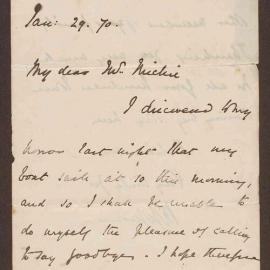 Jan: 29. 70.
My dear Mr. Michie
I discovered to my
horror last night that my
boat sails at 10 this morning,
and so I shall be unable to
do myself the pleasure of calling
to say goodbye. I hope therefore